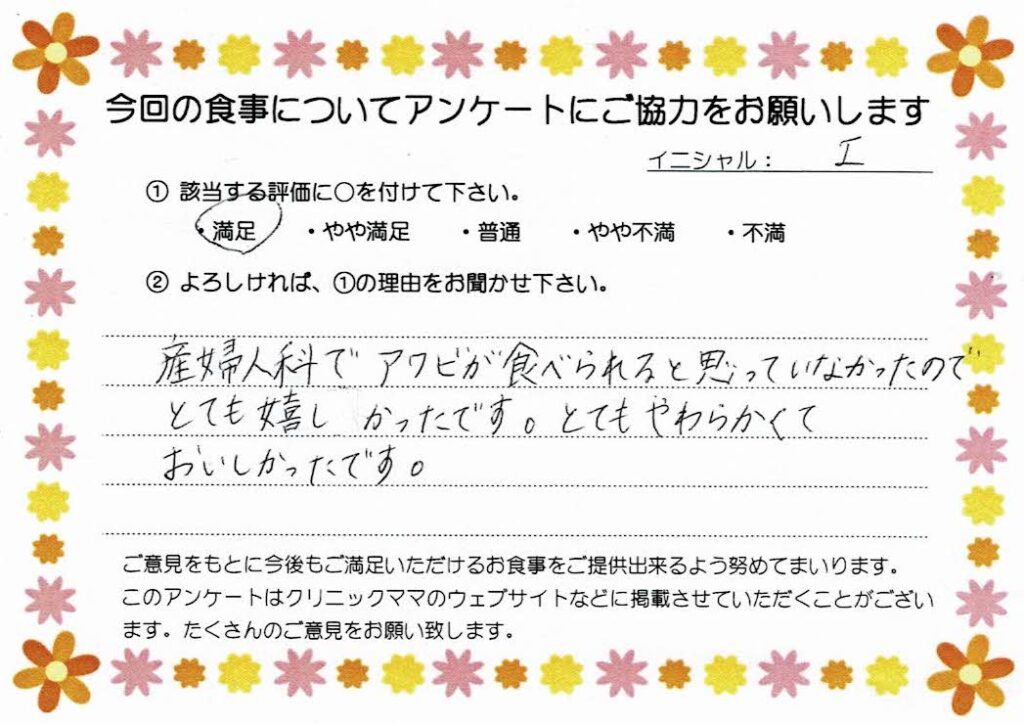 今回の食事についてアンケートにご協力をお願いします
イニシャル： I
① 該当する評価に○を付けて下さい。
・満足 ・やや満足 ・普通 ・やや不満 ・不満
② よろしければ、①の理由をお聞かせ下さい。
産婦人科で アワビが食べられると思っていなかったので
とても嬉し かったです。とてもやわらかくて
おいしかったです。
ご意見をもとに今後もご満足いただけるお食事をご提供出来るよう努めてまいります。
このアンケートはクリニックママのウェブサイトなどに掲載させていただくことがござい
ます。たくさんのご意見をお願い致します。